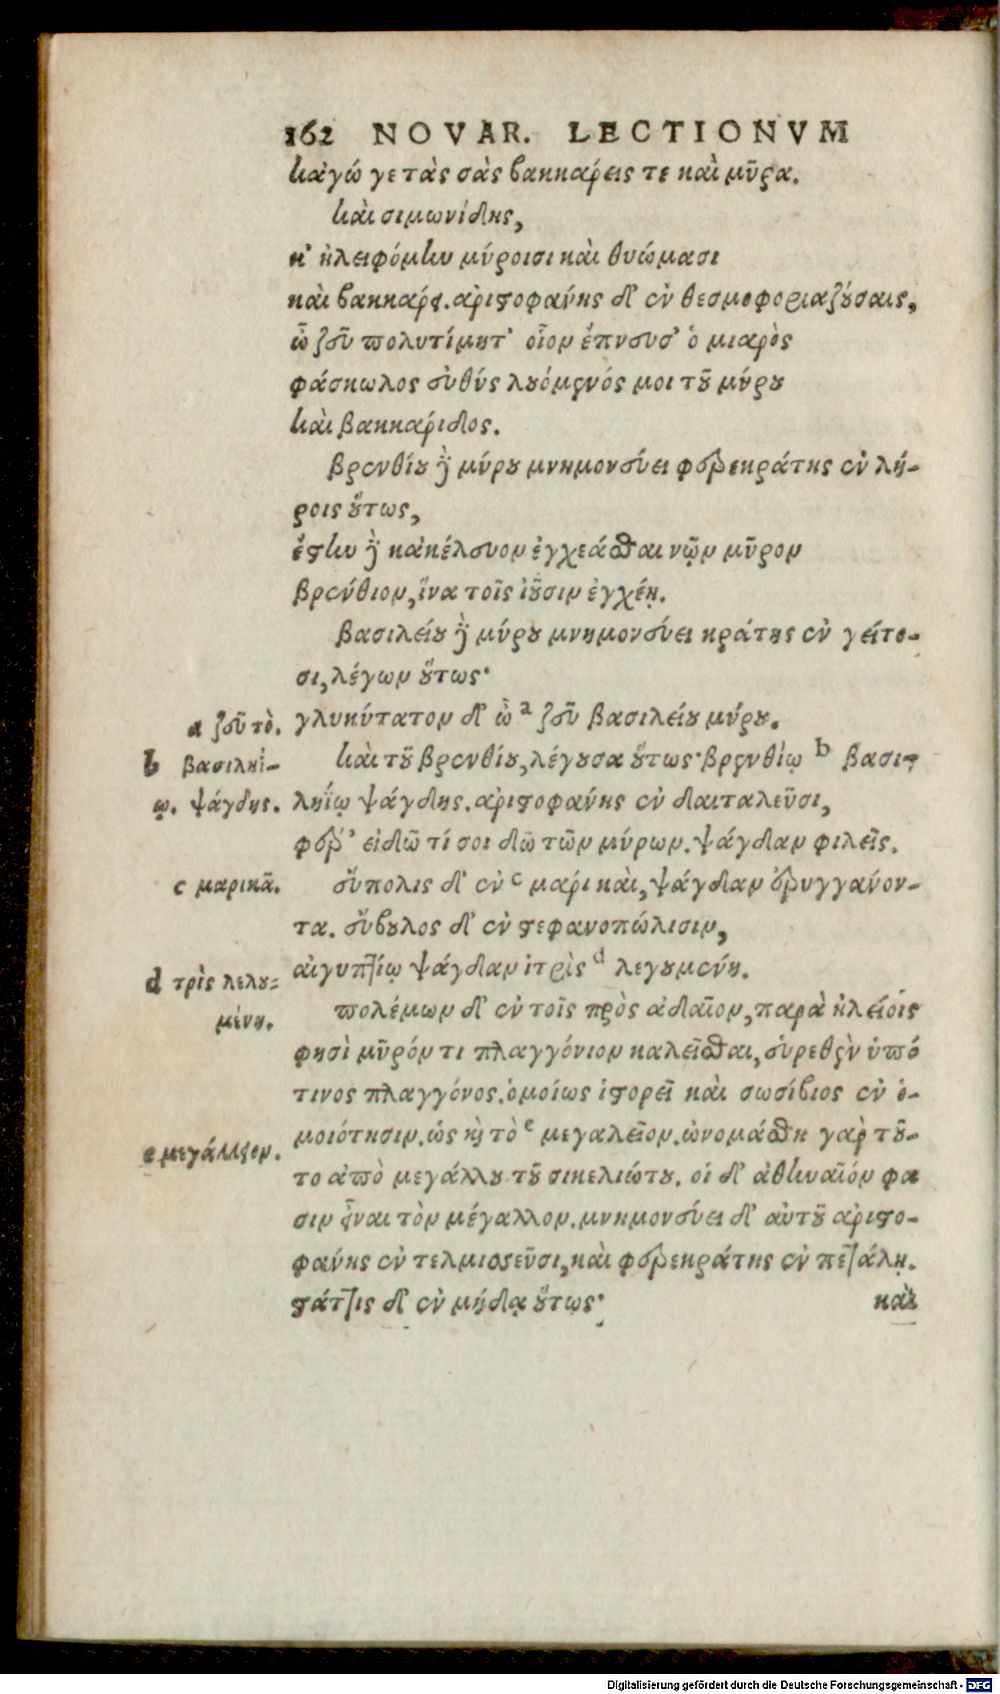 162 NOVAR. LECTIONVM
κἀγώ γε τὰς σὰς βακκάρεις τε καὶ μῦρα.
καὶ σιμωνίδης,
κ' ἠλειφόμην μύροισι καὶ θυώμασι
καὶ βακκάρει. ἀριστοφάνης δ' ἐν θεσμοφοριαζούσαις,
ὦ ζεῦ πολυτίμητ' οἷον ἔπνευσ' ὁ μιαρὸς
φάσκωλος εὐθὺς λυόμενός μοι τοῦ μύρου
καὶ βακκαρίδος.
βρενθίου δὲ μύρου μνημονεύει φερεκράτης ἐν λή-
ροις οὕτως,
ἔστην δὲ κἀκέλευον ἐγχεάσθαι νῷν μῦρον
βρένθιον, ἵνα τοῖς ἰοῦσιν ἐγχέῃ.
βασιλείου δὲ μύρου μνημονεύει κράτης ἐν γείτο-
σι, λέγων οὕτως·
a ζεῦ τὸ.
γλυκύτατον δ' ὦ a ζεῦ βασιλείου μύρου.
b βασιληί-
ῳ. ψάγδης.
καὶ τοῦ βρενθίου, λέγουσα οὕτως· βρενθίῳ b βασι-
ληΐῳ ψάγδης. ἀριστοφάνης ἐν δαιταλεῦσι,
φέρ' εἰδῶ τί σοι δῶ τῶν μύρων. ψάγδαν φιλεῖς.
c μαρικᾶ.
εὔπολις δ' ἐν c μάρι καὶ, ψάγδαν ἐρυγγάνον-
τα. εὔβουλος δ' ἐν στεφανοπώλισιν,
d τρὶς λελου-
μένη.
αἰγυπτίῳ ψάγδαν ἰτρὶς d λεγουμένη.
πολέμων δ' ἐν τοῖς πρὸς ἀδαῖον, παρὰ ἠλείοις
φησὶ μῦρόν τι πλαγγόνιον καλεῖσθαι, εὑρεθὲν ὑπό
τινος πλαγγόνος. ὁμοίως ἱστορεῖ καὶ σωσίβιος ἐν ὁ-
e μεγάλλειον.
μοιότησιν. ὡς καὶ τὸ e μεγαλεῖον. ὠνομάσθη γὰρ τοῦ-
το ἀπὸ μεγάλλου τοῦ σικελιώτου. οἱ δ' ἀθηναῖόν φα
σιν εἶναι τὸν μέγαλλον. μνημονεύει δ' αὐτοῦ ἀριστο-
φάνης ἐν τελμισσεῦσι, καὶ φερεκράτης ἐν πετάλῃ.
στάττις δ' ἐν μήδᾳ οὕτως·
καὶ
Digitalisierung gefördert durch die Deutsche Forschungsgemeinschaft - DFG